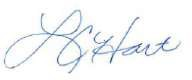 L G Hart